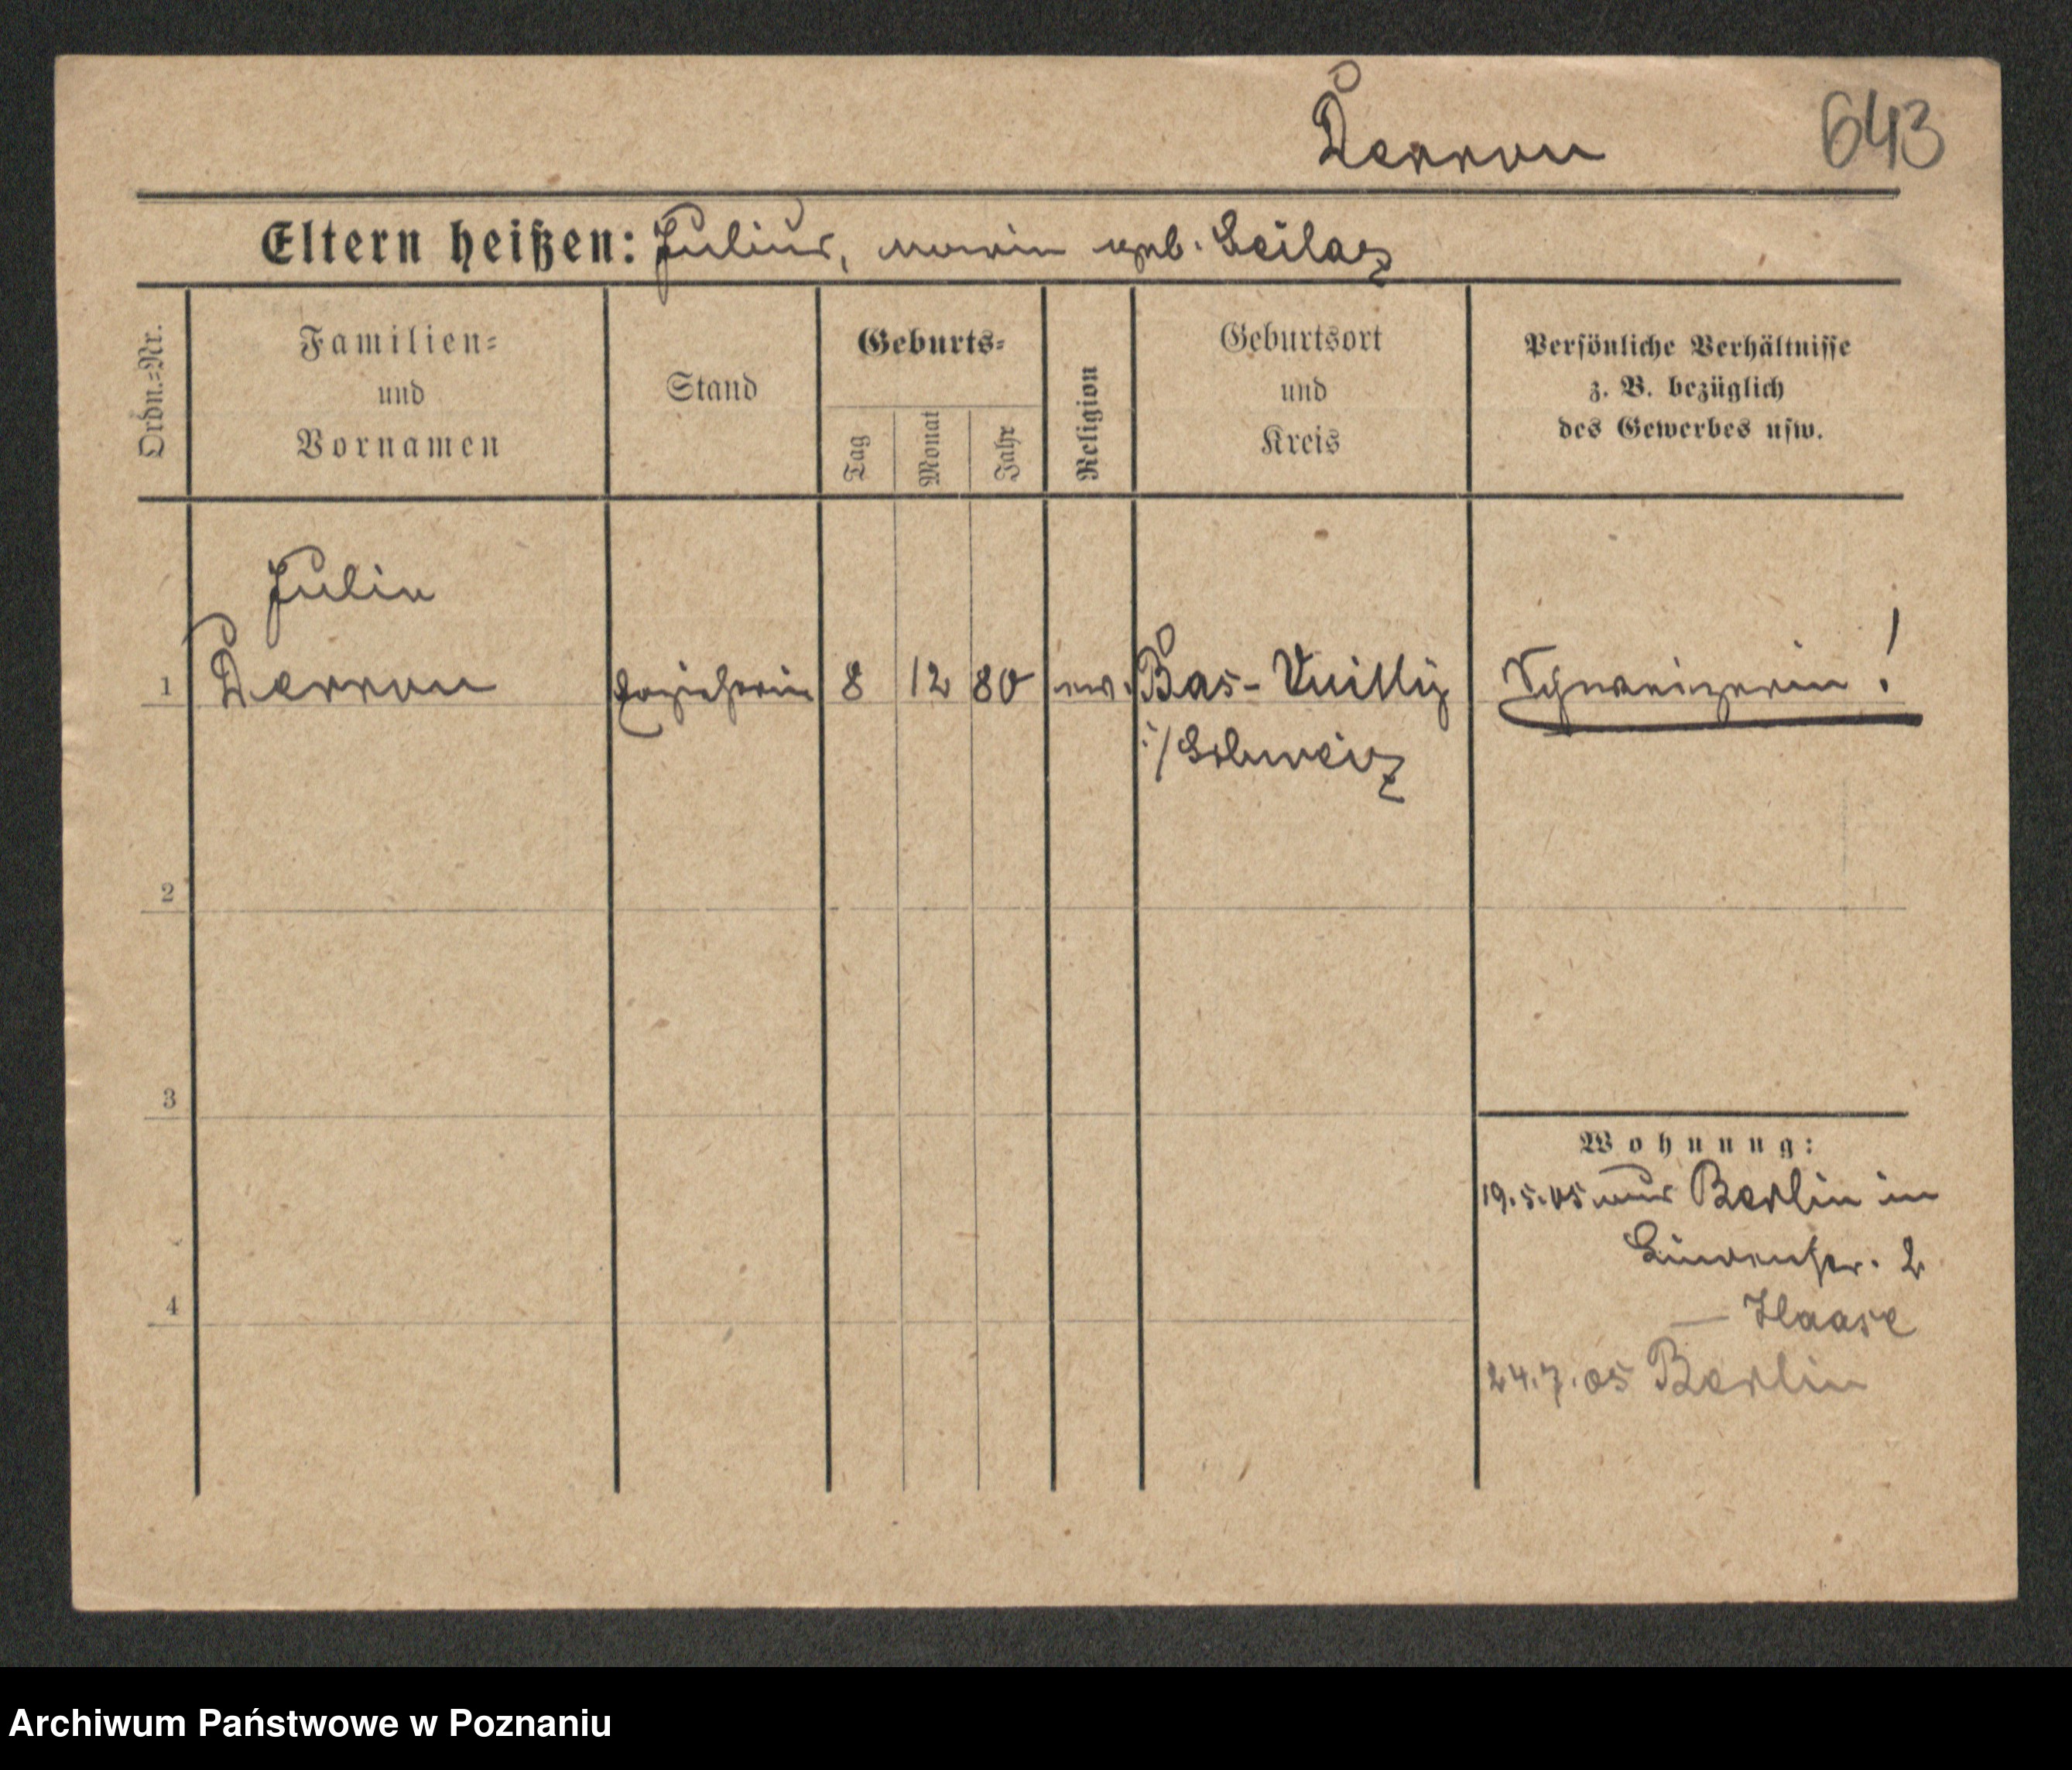 Derron 643
Eltern heißen: Julius, Marie geb. Leilaz
Ordn.=Nr.
Familien=
und
Vornamen
Stand
Geburts=
Tag
Monat
Jahr
Religion
Geburtsort
und
Kreis
Persönliche Verhältnisse
z. B. bezüglich
des Gewerbes usw.
Julie
1 Derron Erzieherin 8 12 80 ev. Bas-Vuilly Schweizerin!
i/Schweiz
2
3
4
Wohnung:
19.5.05 aus Berlin in
2
— Haase
24.7.05 Berlin
Archiwum Państwowe w Poznaniu